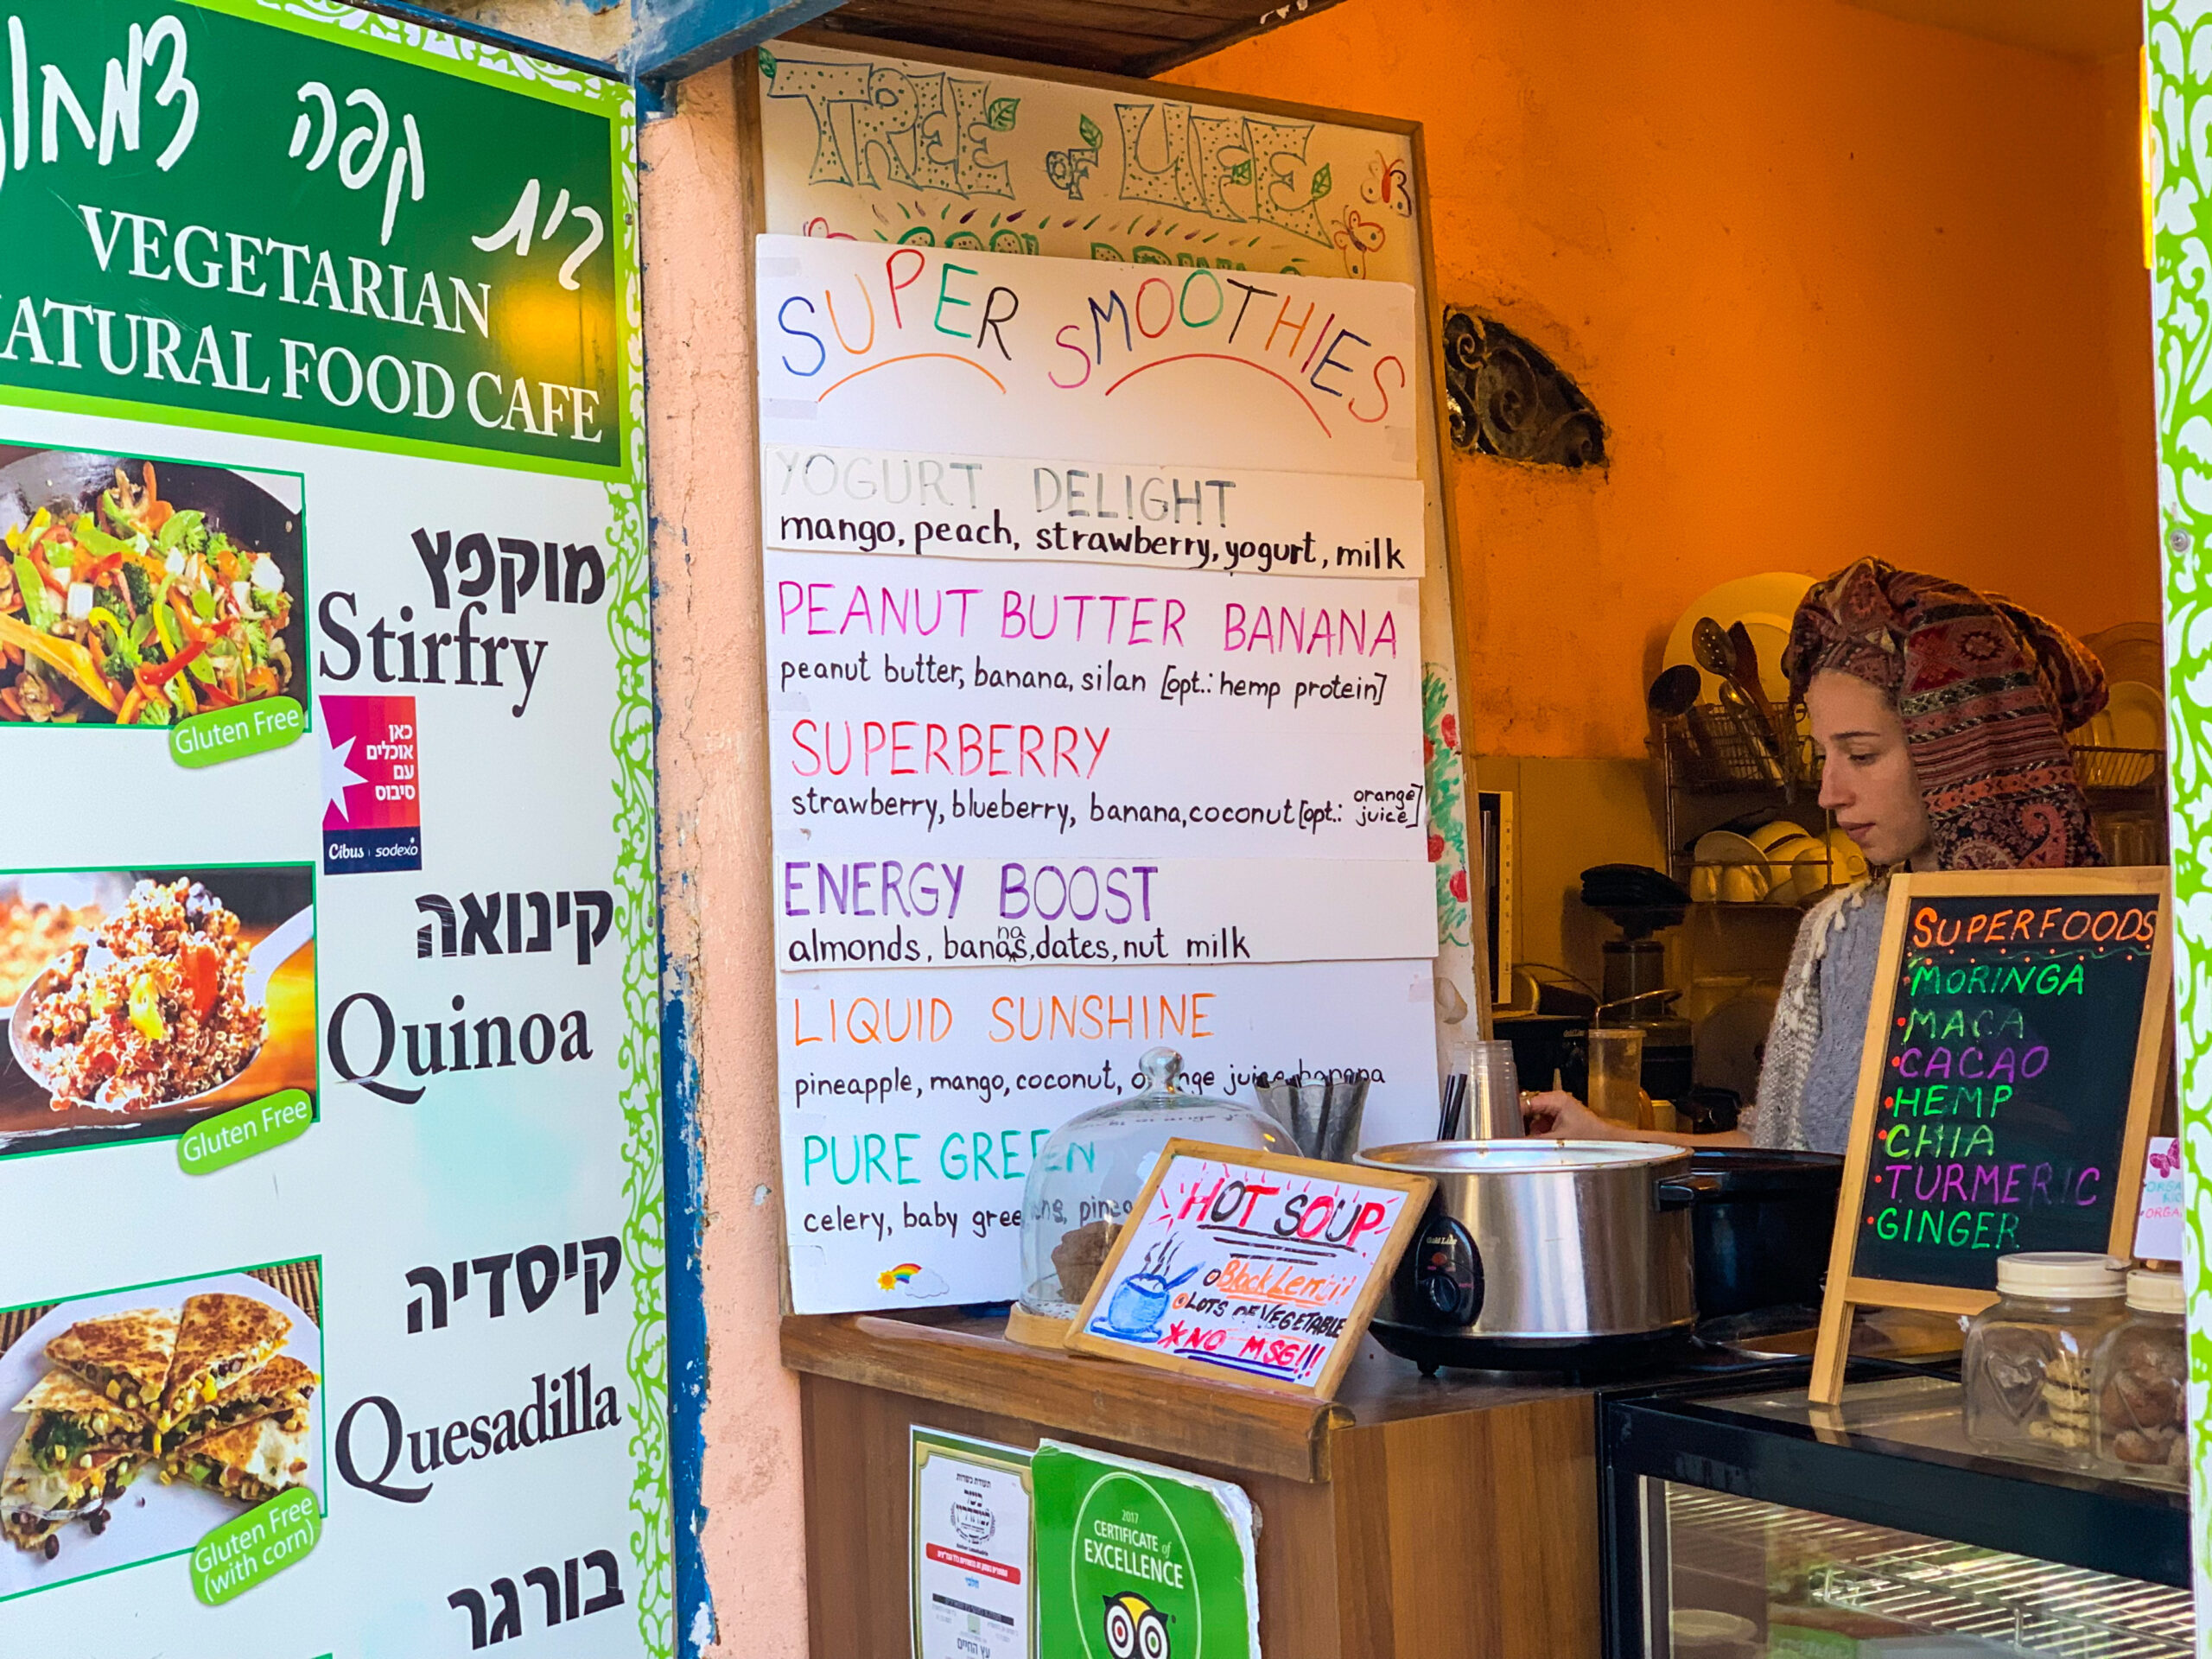 קפה
VEGETARIAN
NATURAL FOOD CAFE
מוקפץ
Stirfry
Gluten Free
כאן
אוכלים
עם
סיבוס
Cibus sodexo
קינואה
Quinoa
Gluten Free
קיסדיה
Quesadilla
Gluten Free
(with corn)
בורגר
TREE OF LIFE
SUPER SMOOTHIES
YOGURT DELIGHT
mango, peach, strawberry, yogurt, milk
PEANUT BUTTER BANANA
peanut butter, banana, silan [opt.: hemp protein]
SUPERBERRY
strawberry, blueberry, banana, coconut [opt.: orange juice]
ENERGY BOOST
almonds, bananas, dates, nut milk
LIQUID SUNSHINE
pineapple, mango, coconut, orange juice, banana
PURE GREEN
celery, baby
HOT SOUP
Black Lentil
LOTS OF VEGETABLE
*NO MSG!!!
SUPERFOODS
•MORINGA
•MACA
•CACAO
•HEMP
•CHIA
•TURMERIC
•GINGER
תעודת כשרות
עץ החיים
2017
CERTIFICATE of
EXCELLENCE